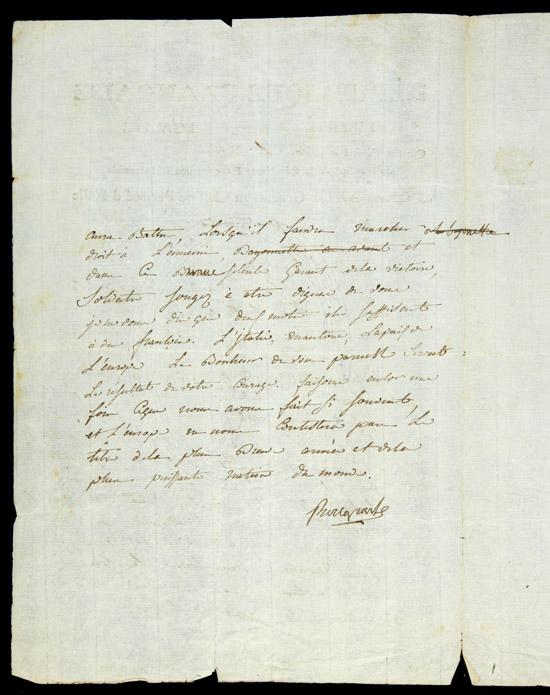 aura Battu Lorsqu'il faudra marcher a la bayonette
droit à L'ennemi, Bayonnette en avant et
dans ce Brave silence Garant de la victoire,
Soldats songez à etre dignes de vous
je ne vous dis que deux mots ils suffisent
à des français. L'italie, mantoue, La paix de
L'europe Le Bonheur de vos parents seront
Le résultat de votre courage faisons encor une
fois ce que nous avons fait si souvent,
et L'europe ne nous Contestera pas Le
titre de la plus Brave armée et de la
plus puissante nation du monde.
Buonaparte